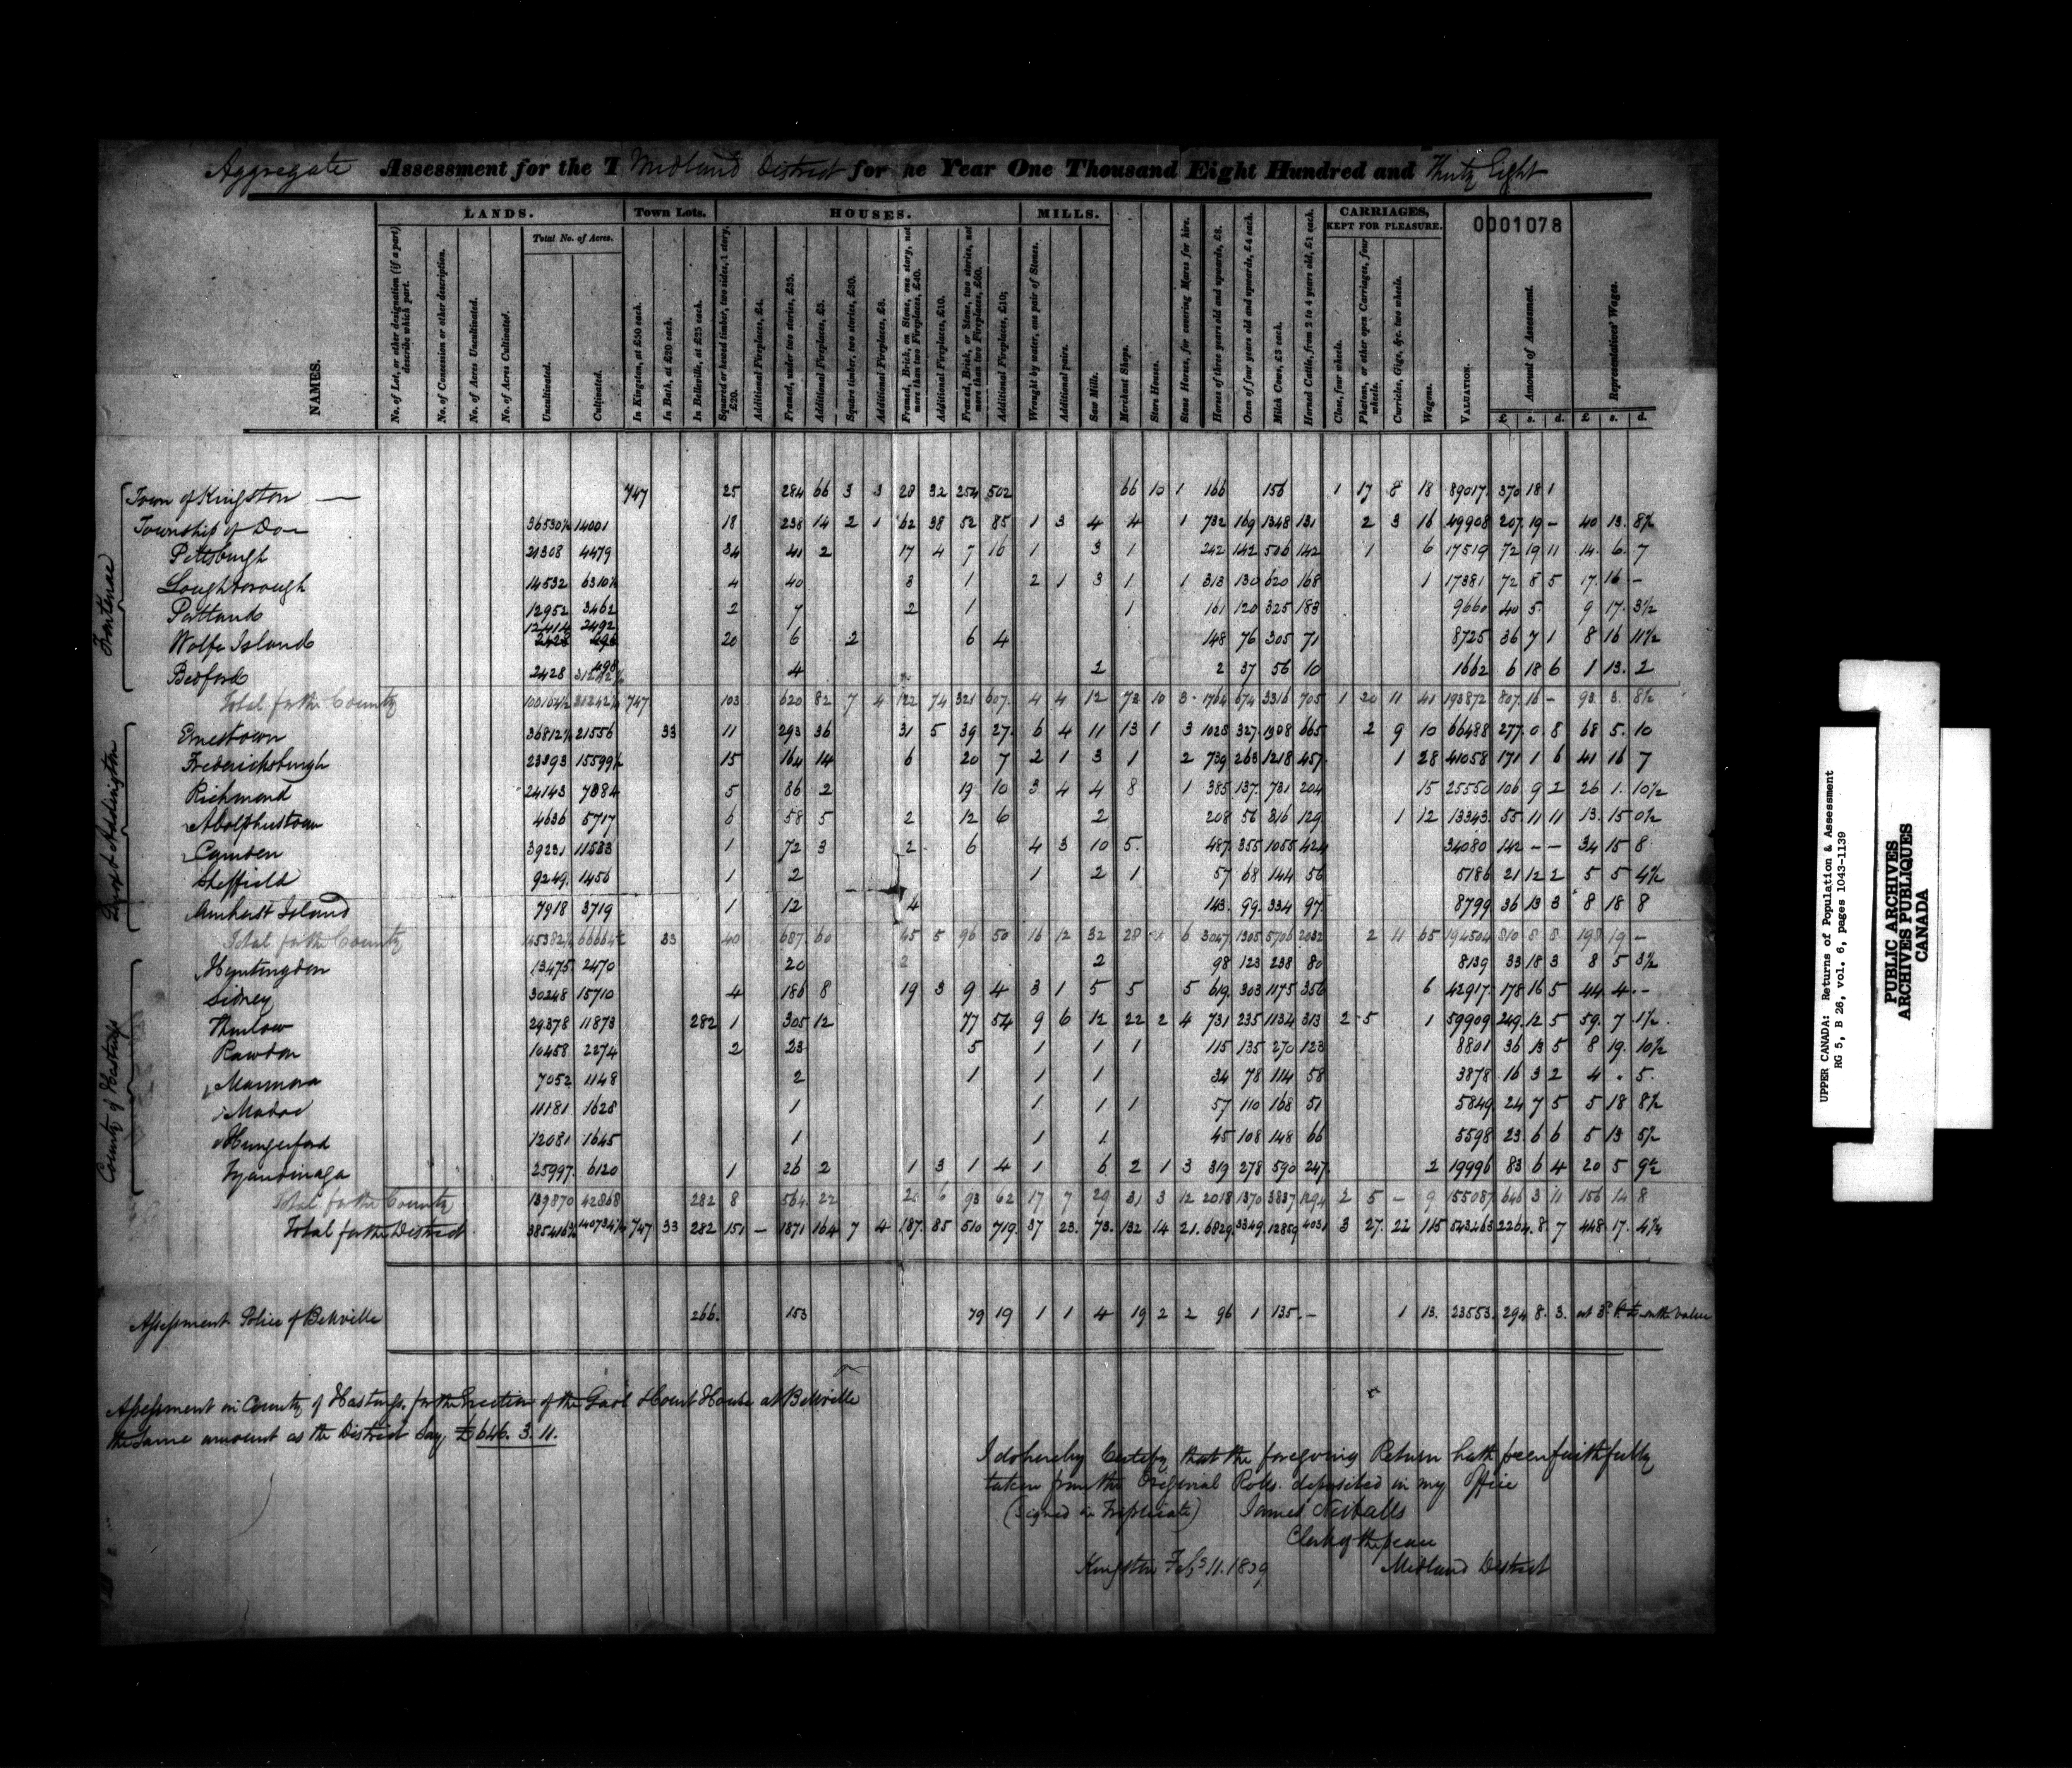 Aggregate Assessment for the T Midland District for he Year One Thousand Eight Hundred and Thirty Eight
LANDS. Town Lots. HOUSES. MILLS. CARRIAGES, KEPT FOR PLEASURE. 0001078
Total No. of Acres.
NAMES.
No. of Lot, or other designation (if a part) describe which part.
No. of Concession or other description.
No. of Acres Uncultivated.
No. of Acres Cultivated.
Uncultivated.
Cultivated.
In Kingston, at £50 each.
In Bath, at £20 each.
In Belleville, at £25 each.
Squared or hewed timber, two sides, 1 story, £20.
Additional Fireplaces, £4.
Framed, under two stories, £35.
Additional Fireplaces, £5.
Square timber, two stories, £30.
Additional Fireplaces, £8.
Framed, Brick, on Stone, one story, not more than two Fireplaces, £40.
Additional Fireplaces, £10.
Framed, Brick, or Stone, two stories, not more than two Fireplaces, £60.
Additional Fireplaces, £10;
Wrought by water, one pair of Stones.
Additional pairs.
Saw Mills.
Merchant Shops.
Store Houses.
Stone Horses, for covering Mares for hire.
Horses of three years old and upwards, £8.
Oxen of four years old and upwards, £4 each.
Milch Cows, £3 each.
Horned Cattle, from 2 to 4 years old, £1 each.
Close, four wheels.
Phaeton, or other open Carriages, four wheels.
Curricles, Gigs, &c. two wheels.
Wagons.
VALUATION.
Amount of Assessment.
Representatives' Wages.
£ s. d. £ s. d.
Frontenac
Town of Kingston — 747 25 284 66 3 3 28 32 254 502 66 10 1 166 156 1 17 8 18 89017 370 18 1
Township of Do— 36530½ 14001 18 238 14 2 1 62 38 52 85 1 3 4 4 1 732 169 1348 131 2 3 16 49908 207 19 – 40 13. 8½
Pittsburgh 21308 4479 34 41 2 17 4 7 16 1 3 1 242 142 506 142 1 6 17519 72 19 11 14. 6. 7
Loughborough 14532 6310½ 4 40 3 1 2 1 3 1 1 313 130 620 168 1 17381 72 8 5 17. 16 –
Portland 12952 3462 2 7 2 1 1 161 120 325 183 9660 40 5. 9 17. 3½
12414 2492
Wolfe Island 20 6 2 6 4 148 76 305 71 8725 36 7 1 8 16 11½
Bedford 2428 498 4 2 2 37 56 10 1662 6 18 6 1 13. 2
Total for the County 100164½ 31242½ 747 103 620 82 7 4 122 74 321 607 4 4 12 73 10 3 1764 674 3316 705 1 20 11 41 193872 807. 16 – 93 3. 8½
Lennox & Addington
Ernestown 36812½ 21556 33 11 293 36 31 5 39 27 6 4 11 13 1 3 1028 327 1908 665 2 9 10 66488 277. 0 8 68 5. 10
Fredericksburgh 23393 15599½ 15 164 14 6 20 7 2 1 3 1 2 739 263 1218 457 1 28 41058 171 1 6 41 16 7
Richmond 24143 7084 5 86 2 19 10 3 4 4 8 1 385 137. 731 204 15 25550 106 9 2 26 1. 10½
Adolphustown 4636 5717 6 58 5 2 12 6 2 208 56 316 129 1 12 13343 55 11 11 13. 15 0½
Camden 39231 11533 1 72 3 2 6 4 3 10 5. 487 355 1055 424 34080 142 – – 34 15 8
Sheffield 9249. 1456 1 2 1 2 1 57 68 144 56 5186 21 12 2 5 5 4½
Amherst Island 7918 3719 1 12 4 143. 99. 334 97 8799 36 13 3 8 18 8
Total for the County 145382½ 66664½ 33 40 687. 60 45 5 96 50 16 12 32 28 1 6 3047 1305 5706 2032 2 11 65 194504 810 8 8 198 19 –
County of Hastings
Huntingdon 13475 2470 20 2 2 98 123 238 80 8139 33 18 3 8 5 3½
Sidney 30248 15710 4 186 8 19 3 9 4 3 1 5 5 5 619 303 1175 356 6 42917 178 16 5 44 4. –
Thurlow 29378 11873 282 1 305 12 77 54 9 6 12 22 2 4 731 235 1134 313 2 5 1 59909 249. 12 5 59. 7 1½
Rawdon 10458 2274 2 23 5 1 1 1 115 135 270 123 8801 36 13 5 8 19. 10½
Marmora 7052 1148 2 1 1 1 34 78 114 58 3878 16 3 2 4 . 5.
Madoc 11181 1628 1 1 1 1 57 110 168 51 5849 24 7 5 5 18 8½
Hungerford 12081 1645 1 1 1 45 108 148 66 5598 23. 6 6 5 13 5½
Tyendinaga 25997 6120 1 26 2 1 3 1 4 1 6 2 1 3 319 278 590 247 2 19996 83 6 4 20 5 9½
Total for the County 139870 42868 282 8 564. 22 20 6 93 62 17 7 29 31 3 12 2018 1370 3837 1294 2 5 – 9 155087 646 3 11 156 14 8
Total for the District 385416¾ 140734¼ 747 33 282 151 – 1871 164 7 4 187. 85 510 719. 37 23. 73. 132 14 21. 6829. 3349. 12859 4031 3 27. 22 115 543463 2264. 8. 7 448 17. 4¾
Assessment Police of Belleville 266. 153 79 19 1 1 4 19 2 2 96 1 135. – 1 13. 23553. 294 8. 3. on the value
Assessment in County of Hastings, for the Erection of the Gaol & Court House at Belleville
the same amount as the District say £646. 3. 11.
I do hereby Certify that the foregoing Return hath been faithfully
taken from the Original Rolls deposited in my Office
(signed in Triplicate) James Nickalls
Clerk of the peace
Kingston Feb 11. 1839 Midland District
UPPER CANADA: Returns of Population & Assessment
RG 5, B 26, vol. 6, pages 1043-1139
PUBLIC ARCHIVES
ARCHIVES PUBLIQUES
CANADA